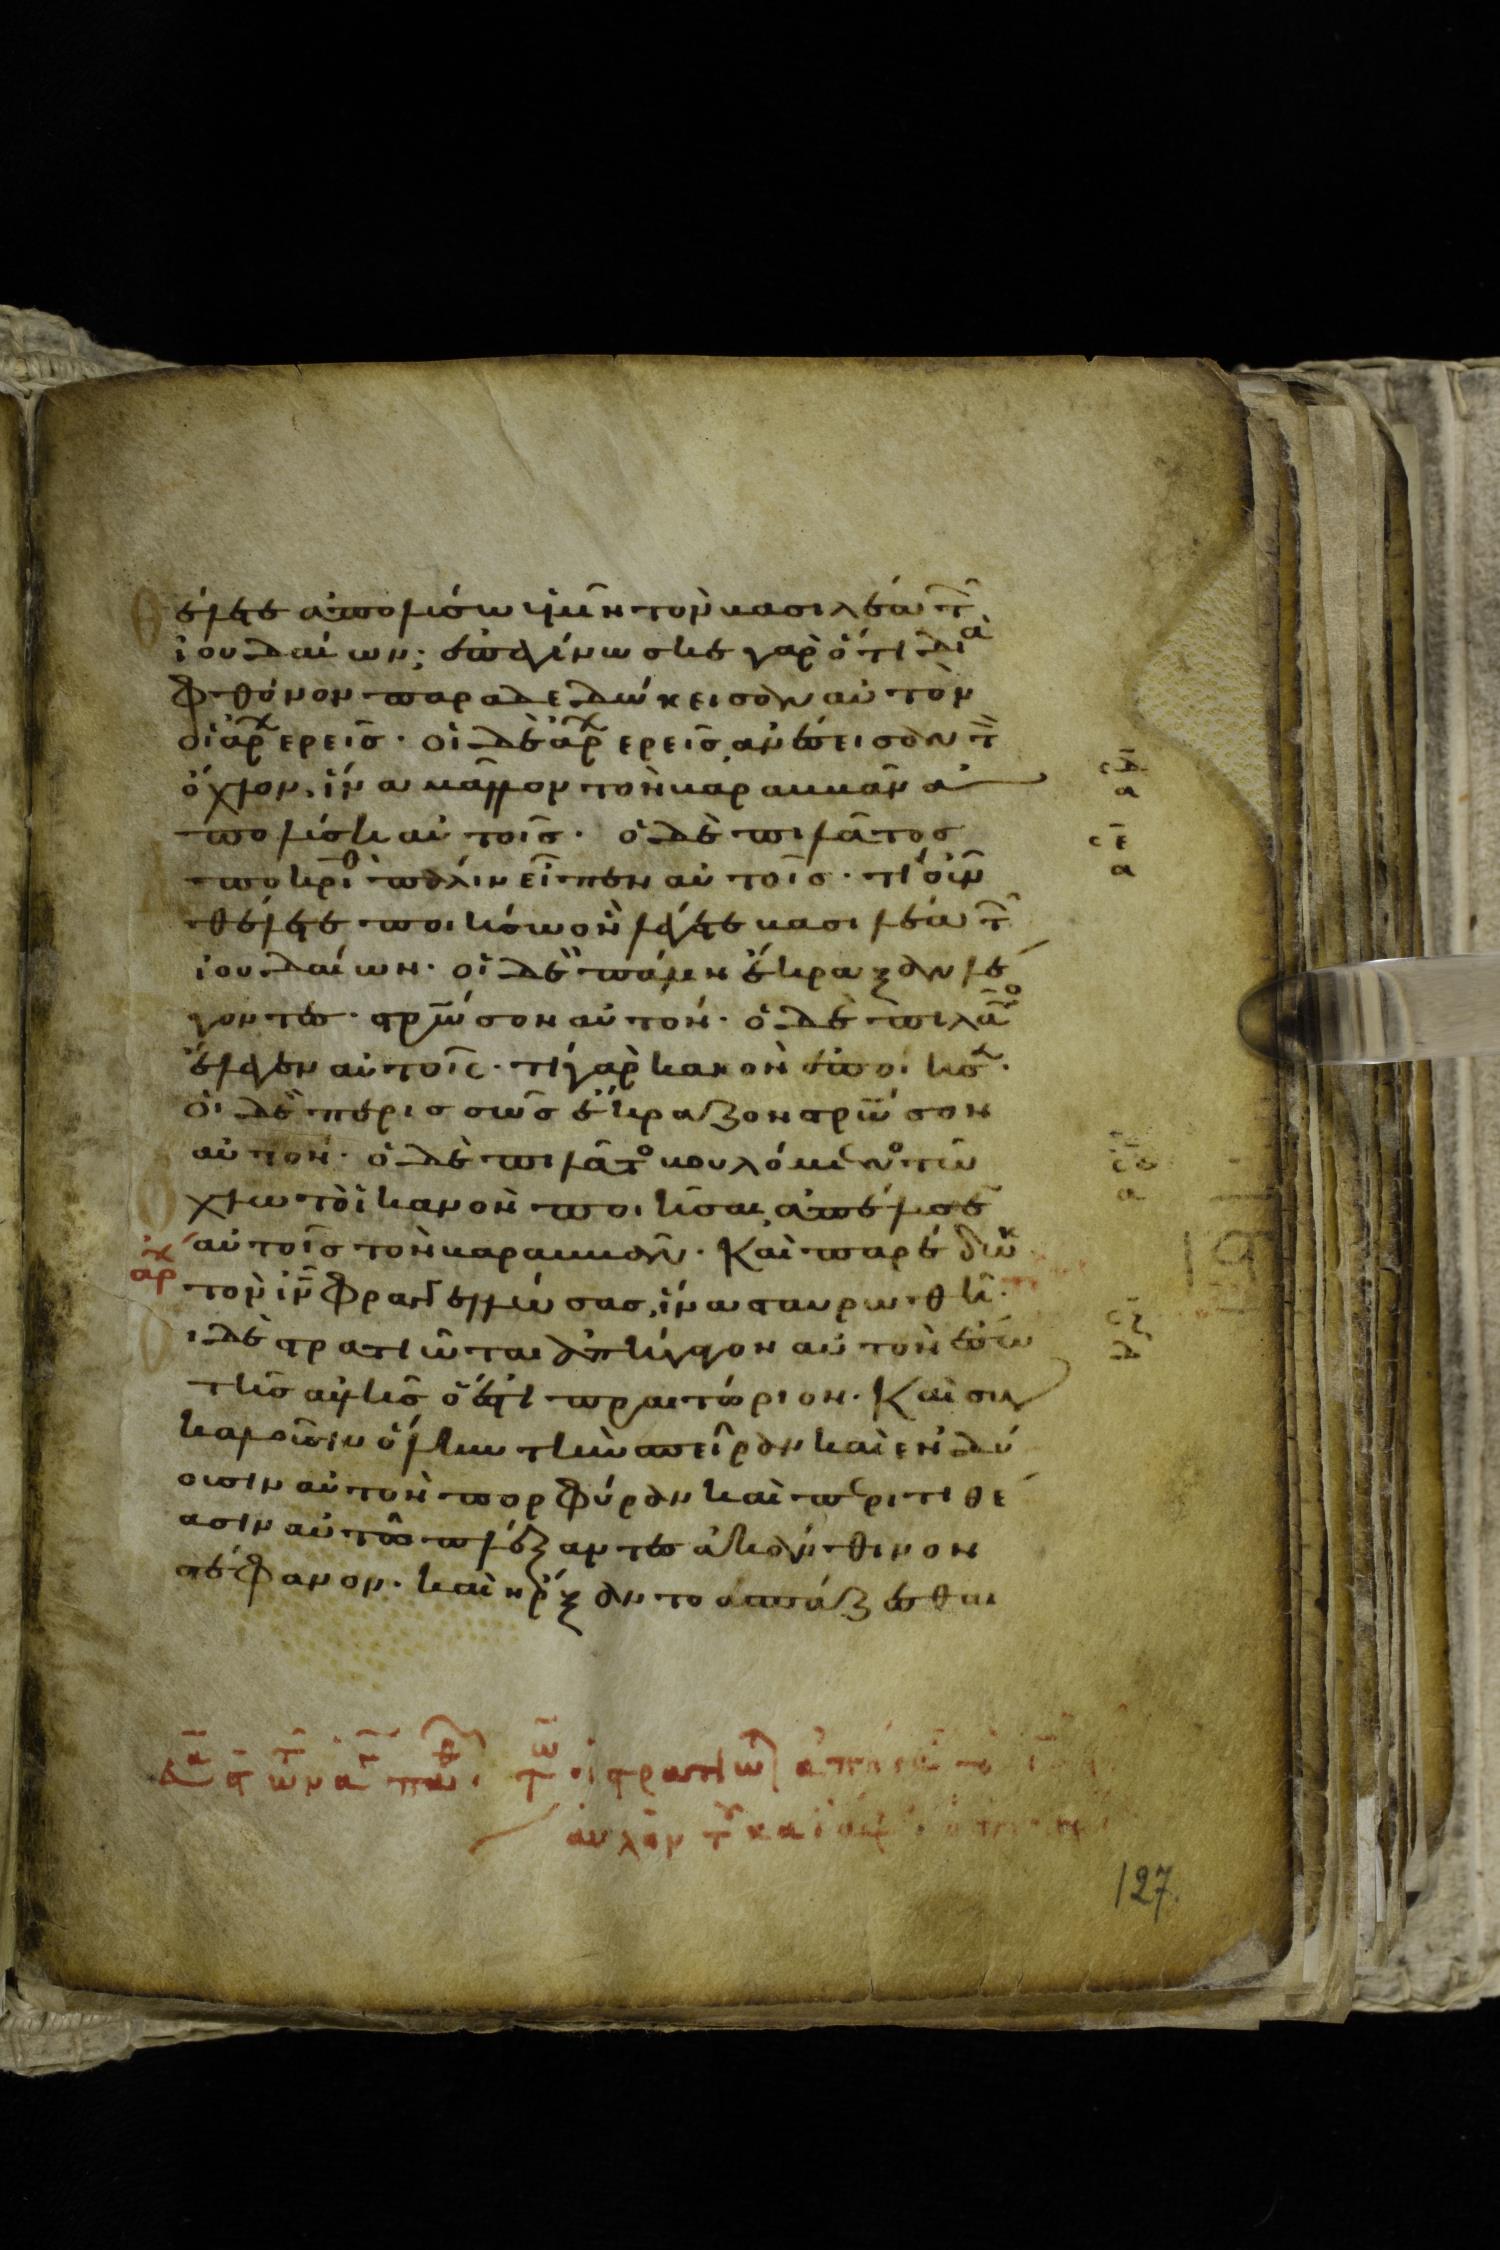 Θέλετε ἀπολύσω ὑμῖν τὸν βασιλέα τ̅
ἰουδαίων; ἐπεγίνωσκε γὰρ ὅτι διὰ
φθόνον παραδεδώκεισαν αὐτὸν
οἱ ἀρχερεῖς· οἱ δὲ ἀρχερεῖς ἀνέσεισαν τ̅
ὄχλον, ἵνα μᾶλλον τὸν βαραββᾶν ἀ
πολύσῃ αὐτοῖς· ὁ δὲ πιλᾶτος
ἀποκρι^θ πάλιν εἶπεν αὐτοῖς· τί οὖν
θέλετε ποιήσω ὃν λέγετε βασιλέα τ̅
ἰουδαίων· οἱ δὲ πάλιν ἔκραξαν λέ
γοντες· στ̅ρωσον αὐτόν· ὁ δὲ πιλᾶτο
ἔλεγεν αὐτοῖς· τί γὰρ κακὸν ἐποίησ·
οἱ δὲ περισσῶς ἔκραζον στ̅ρωσον
αὐτόν· ὁ δὲ πιλᾶτο βουλόμενο τῶ
ὄχλω τὸ ἱκανὸν ποιῆσαι, ἀπέλυσε
αὐτοῖς τὸν βαραββᾶν· Καὶ παρέδωκ
ἀρχ
τὸν ἰ̅ν̅ φραγελλώσας, ἵνα σταυρωθῆ·
Οἱ δὲ στρατιῶται ἀπήγαγον αὐτὸν ἔσω
τῆς αὐλῆς ὅ ἐστι πραιτώριον· Καὶ συγ
καλοῦσιν ὅλην τὴν σπεῖραν καὶ ἐνδύ
ουσιν αὐτὸν πορφύραν καὶ περιτιθέ
ασιν αὐτῶ πλέξαντες ἀκάνθινον
στέφανον· καὶ ἤρξαντο ἀσπάζεσθαι
σ̅δ̅
α
σ̅ε̅
α
127.